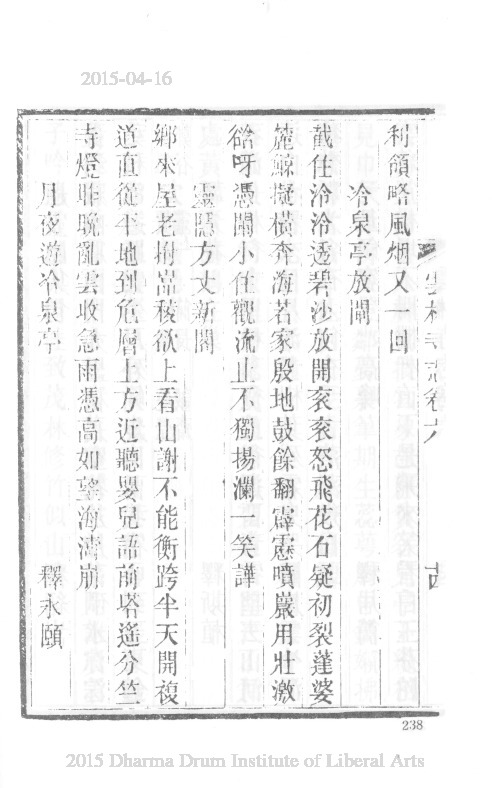 2015-04-16
雲林寺志卷六
古
利領略風烟又一回
冷泉亭放閘
截住泠泠透碧沙放開袞袞怒飛花石疑初裂蓬婆
麓鯨擬橫奔海若家殷地鼓餘翻霹靂噴巖用壯激
谽呀憑闌小住觀流止不獨揚瀾一笑譁
靈隱方丈新閣
鄉來屋老拊崇稜欲上看山謝不能衡跨半天開複
道直從平地到危層上方近聽嬰兒語前塔遙分竺
寺燈昨晚亂雲收急雨憑高如望海濤崩
月夜遊冷泉亭 釋永頤
238
2015 Dharma Drum Institute of Liberal Arts